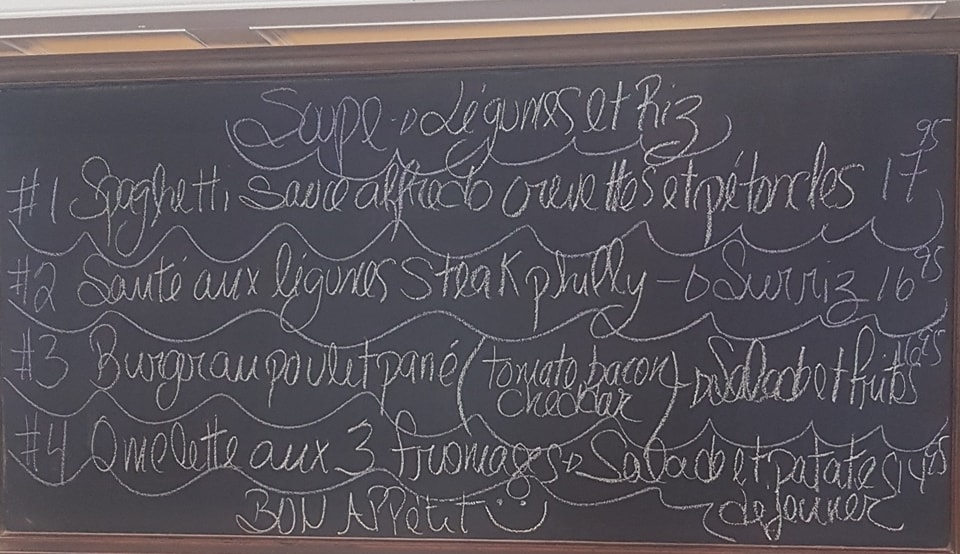 Soupe → Légumes et Riz
#1 Spaghetti sauce alfredo crevettes et pétoncles 17 95
#2 Sauté aux légumes steak philly → Sur riz 16 95
#3 Burger au poulet pané (tomato, bacon, cheddar) → Salade et frites 16 95
#4 Omelette aux 3 fromages → Salade et patates 14 95
dejeuner
BON APPétit